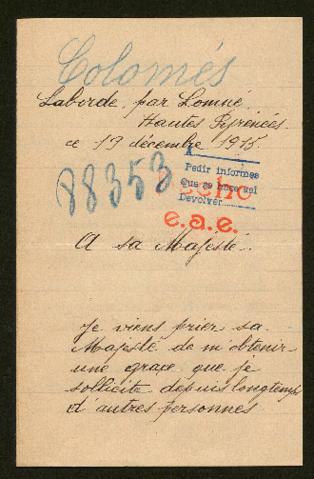 Colomés
Laborde, par Lomné
Hautes Pyrénées
ce 19 décembre 1915.
88353
Pedir informes
Que se hace así
Devolver
echo
e.a.e.
A sa Majesté.
Je viens prier sa
Majesté de m'obtenir
une grace que je
sollicite depuis longtemps
d'autres personnes